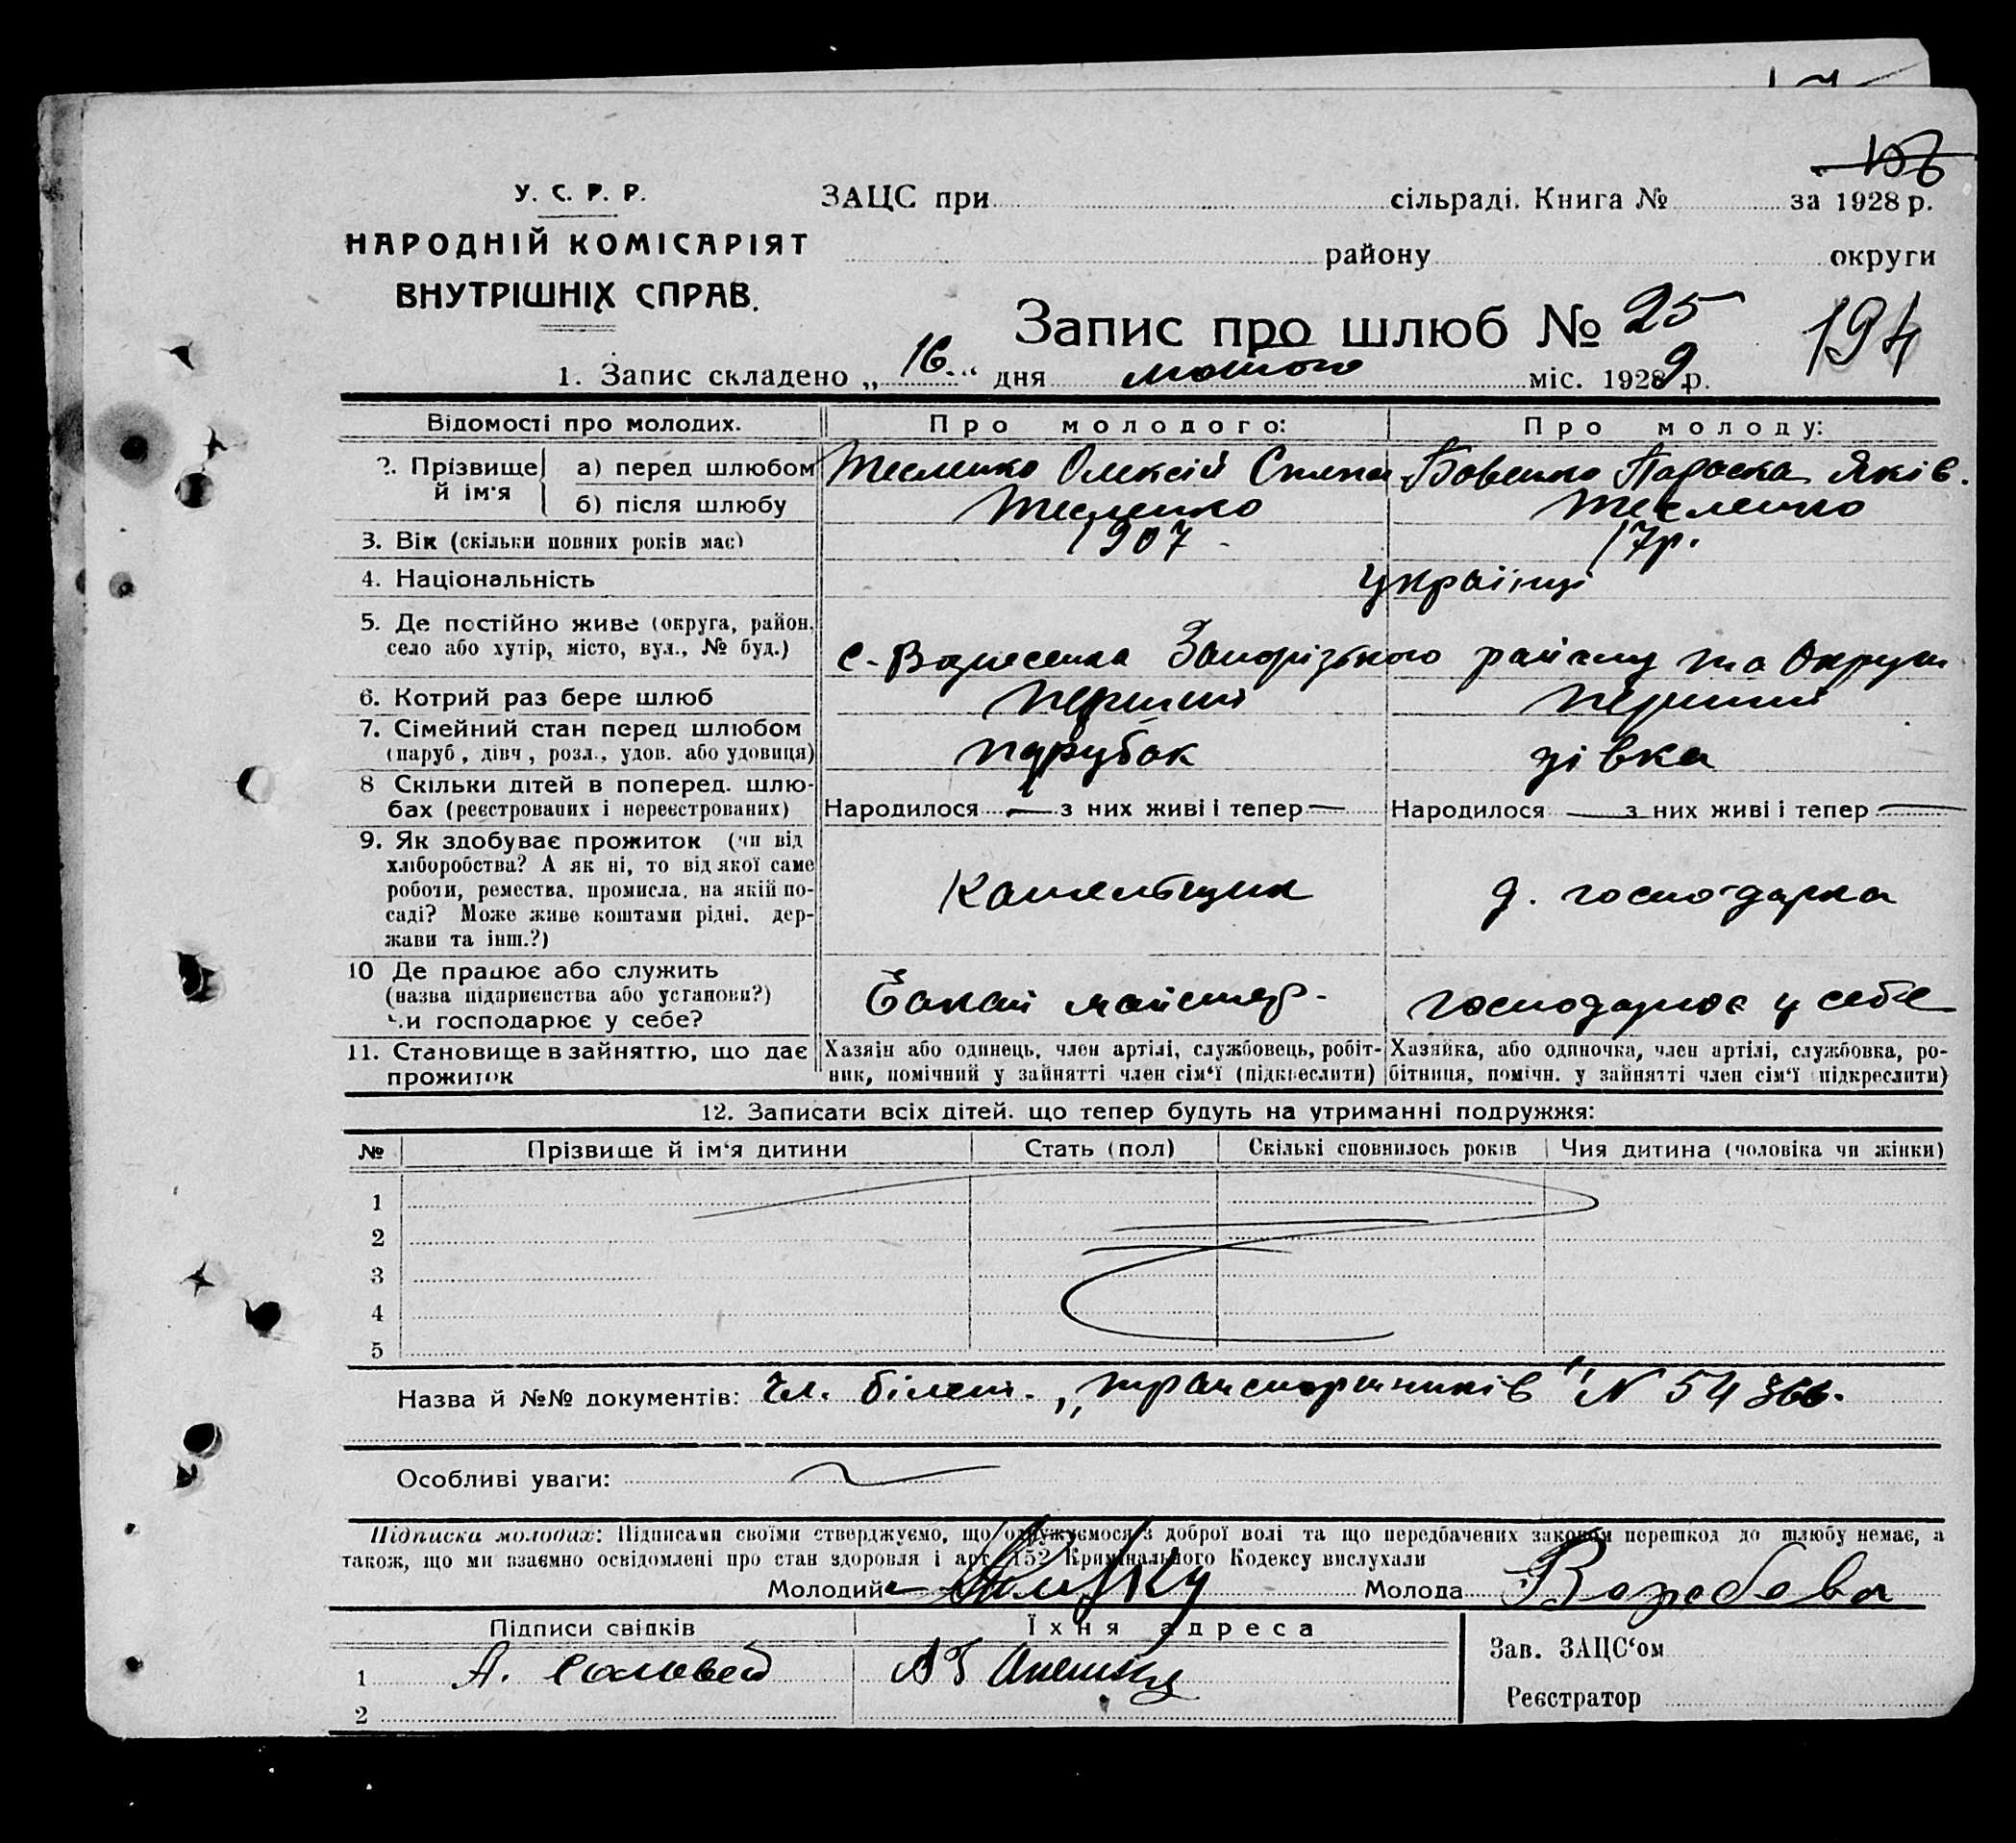 156
У. С. Р. Р.
НАРОДНІЙ КОМІСАРІЯТ
ВНУТРІШНІХ СПРАВ.
ЗАЦС при сільраді. Книга № за 1928 р.
району округи
Запис про шлюб № 25
194
1. Запис складено „16“ дня лютого міс. 1929 р.
Відомості про молодих. Про молодого: Про молоду:
2. Прізвище й ім'я а) перед шлюбом Тесленко Олексій Бовенко Параска Яків.
б) після шлюбу Тесленко Тесленко
3. Вік (скільки повних років має) 1907 17р.
4. Національність українці
5. Де постійно живе (округа, район,
село або хутір, місто, вул., № буд.) с. Вознесенка Запорізького району та Округи
6. Котрий раз бере шлюб перший перший
7. Сімейний стан перед шлюбом
(паруб., дівч., розл., удов. або удовиця) парубок дівка
8 Скільки дітей в поперед. шлю-
бах (реєстрованих і нереєстрованих) Народилося — з них живі і тепер — Народилося — з них живі і тепер —
9. Як здобуває прожиток (чи від
хліборобства? А як ні, то від якої саме
роботи, ремества, промисла, на якій по-
саді? Може живе коштами рідні, дер-
жави та інш.?)
д. господарка
10 Де працює або служить
(назва підприємства або установи?)
Чи господарює у себе?
майстер. господарює у себе
11. Становище в зайняттю, що дає
прожиток
Хазяін або одинець, член артілі, службовець, робіт-
ник, помічний у зайнятті член сім'ї (підкреслити)
Хазяйка, або одиночка, член артілі, службовка, ро-
бітниця, помічн. у зайнятті член сім'ї підкреслити)
12. Записати всіх дітей, що тепер будуть на утриманні подружжя:
№ Прізвище й ім'я дитини Стать (пол) Скількі сповнилось років Чия дитина (чоловіка чи жінки)
1
2
3
4
5
Назва й №№ документів: Чл. білет. „транспортників" N 54366.
Особливі уваги:
Підписка молодих: Підписами своїми стверджуємо, що одружуємося з доброї волі та що передбачених законом перешкод до шлюбу немає, а
також, що ми взаємно освідомлені про стан здоровля і арт. 152 Кримінального Кодексу вислухали
Молодий Молода
Підписи свідків Їхня адреса
1 А. Соловей
2
Зав. ЗАЦС'ом
Реєстратор